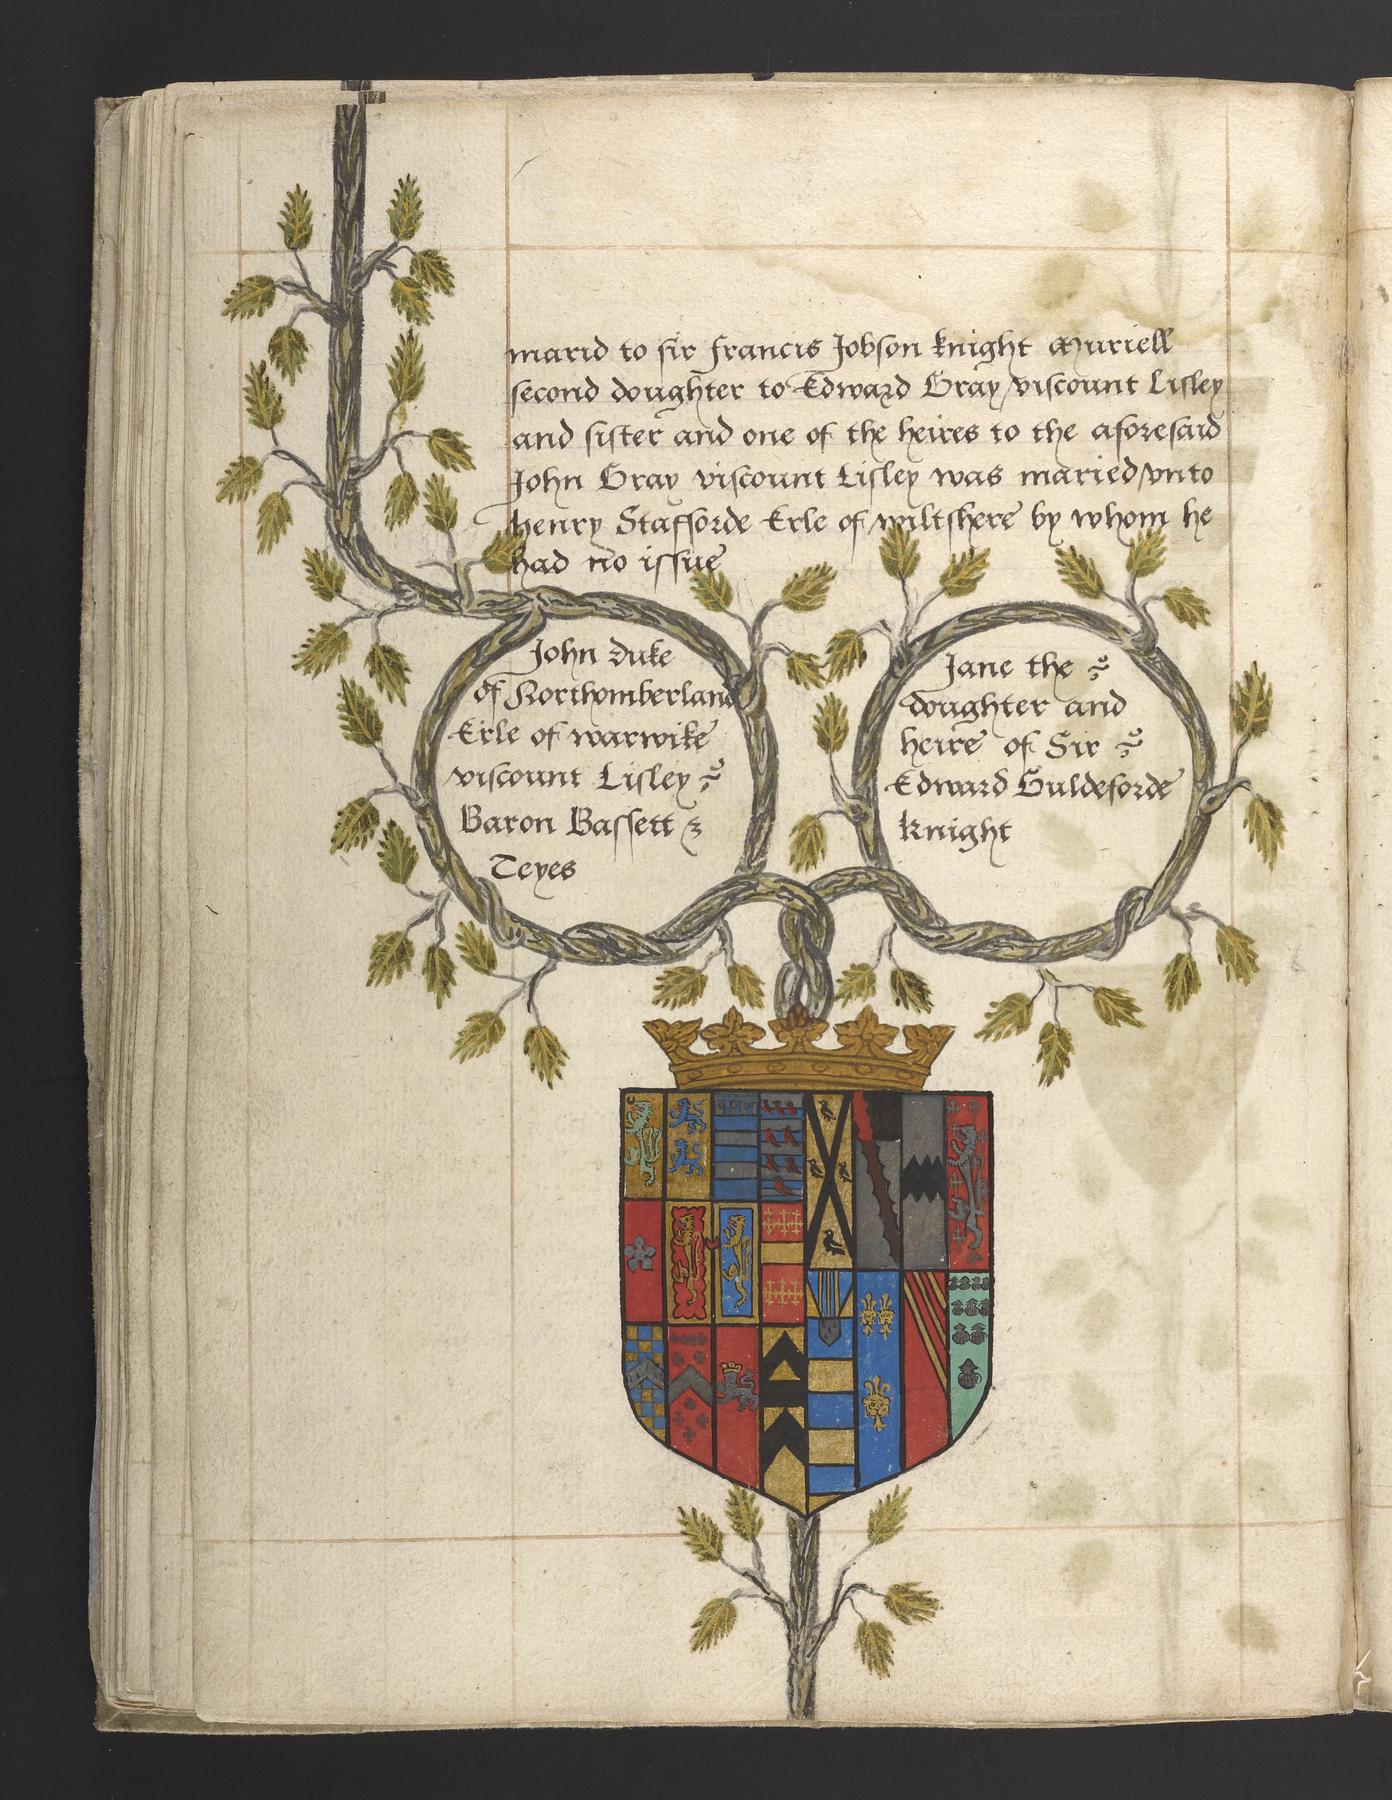 marid to sir francis Jobson knight Muriell
second doughter to Edward Gray viscount Lisley
and sister and one of the heires to the aforesaid
John Gray viscount Lisley was maried vnto
henry Stafforde Erle of wiltshere by whom he
had no issue
John Duke
of Northomberland
Erle of warwike
viscount Lisley
Baron Bassett &
Teyes
Jane the
doughter and
heire of Sir
Edward Guldeforde
knight